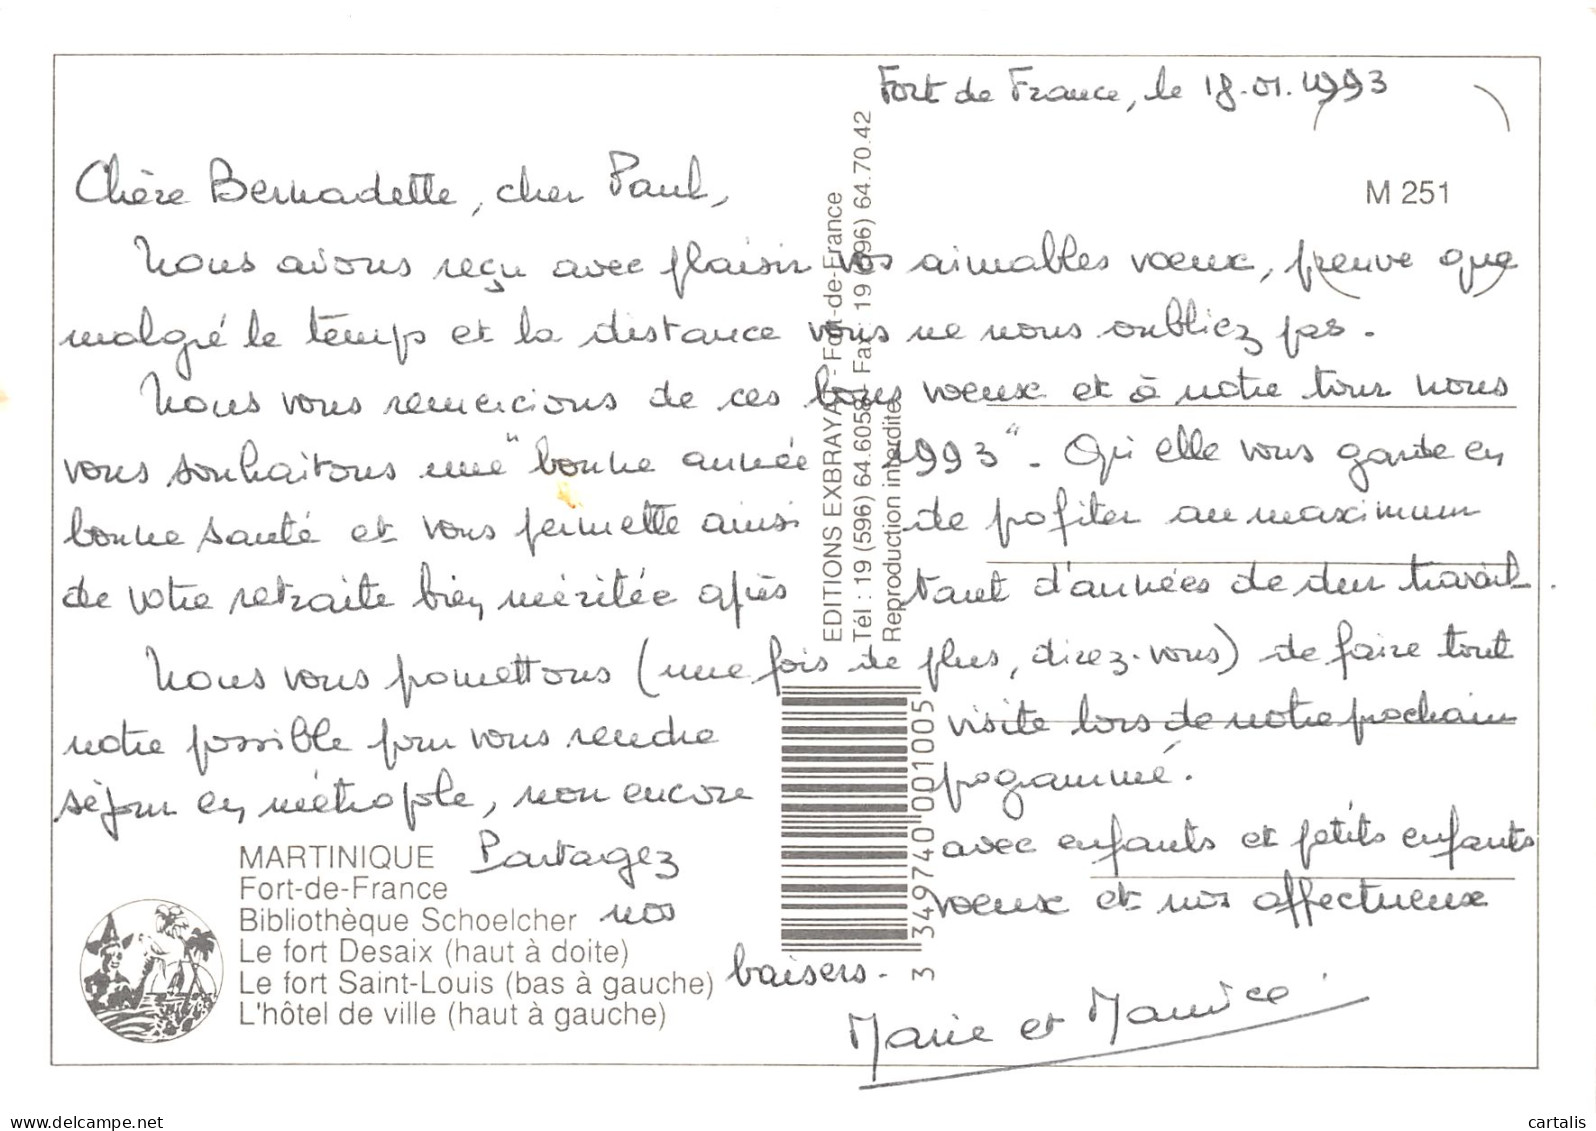 Fort de France, le 18.01.1993
M 251
Chère Bernadette, cher Paul,
Nous avons reçu avec plaisir vos aimables voeux, preuve que
malgré le temps et la distance vous ne nous oubliez pas.
Nous vous remercions de ces bons voeux et à notre tour nous
vous souhaitons une "bonne année 1993". Qu'elle vous garde en
bonne santé et vous permette ainsi de profiter au maximum
de votre retraite bien méritée après tant d'années de dur travail.
Nous vous promettons (une fois de plus, direz-vous) de faire tout
notre possible pour vous rendre visite lors de notre prochain
séjour en métropole, non encore programmé.
Partagez avec enfants et petits enfants
nos voeux et nos affectueux
baisers.
Marie et Maurice
MARTINIQUE
Fort-de-France
Bibliothèque Schoelcher
Le fort Desaix (haut à doite)
Le fort Saint-Louis (bas à gauche)
L'hôtel de ville (haut à gauche)
EDITIONS EXBRAYAT - Fort-de-France
Tél : 19 (596) 64.6058 - Fax : 19 (596) 64.70.42
Reproduction interdite
3 349740 001005
www.delcampe.net
cartalis